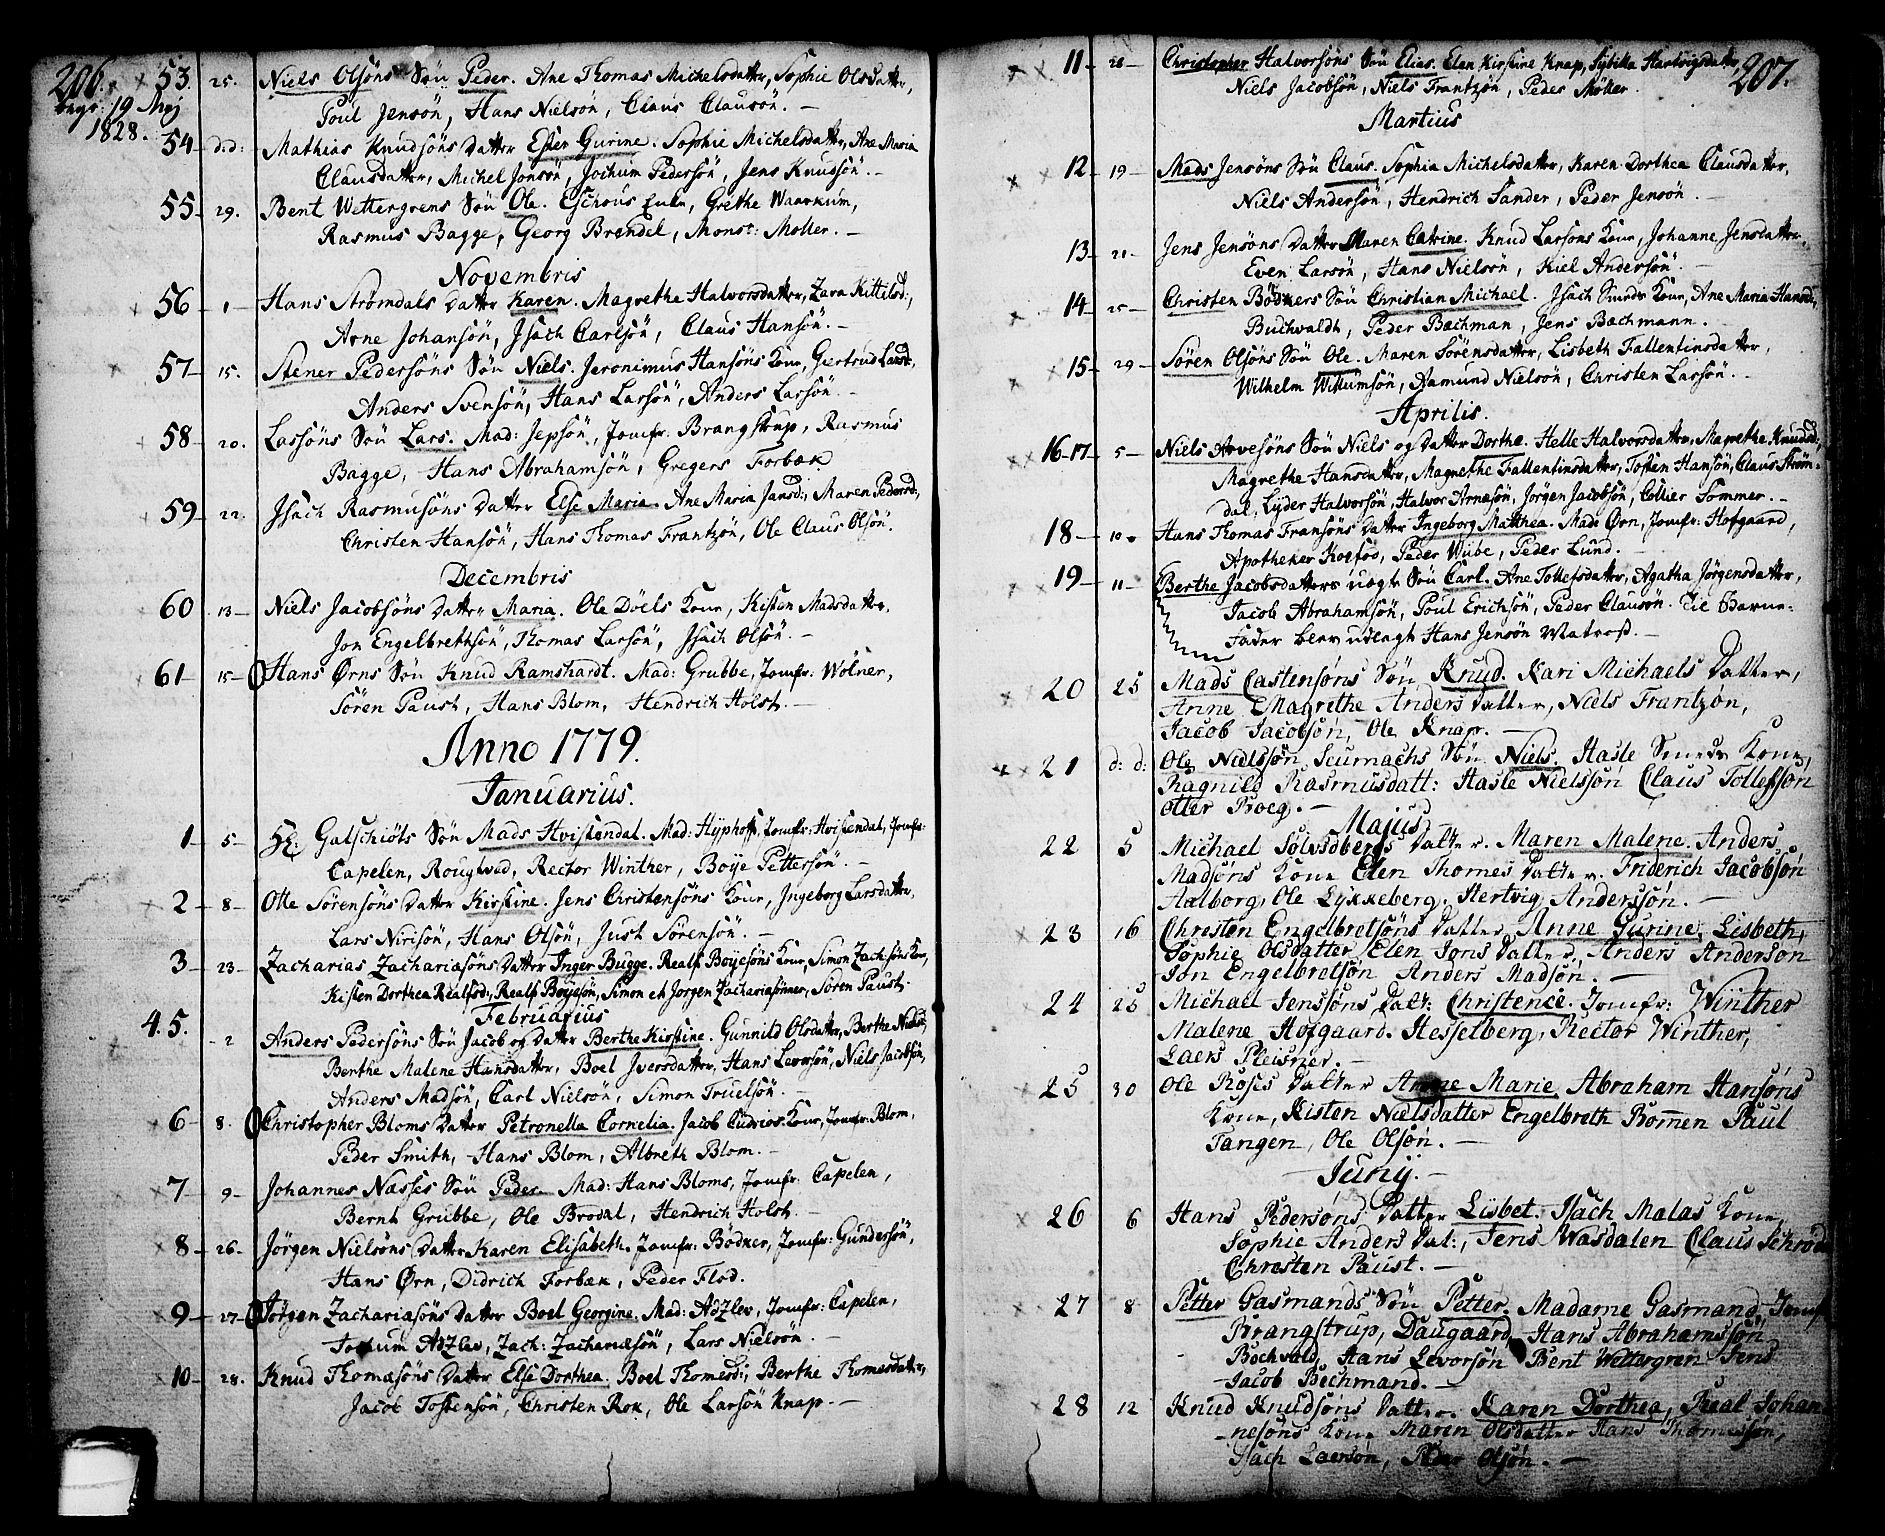 206.
begr: 19 Maj
1828.
53. 25. Niels Olsöns Sön Peder. Ane Thomas Michelsdatter, Sophie Olsdatter,
Poul Jensön, Hans Nielsön, Claus Clausön.
54 did: Mathias Knudsöns Datter Ester Gurine. Sophie Michelsdatter, Ane Maria
Clausdatter, Michel Jonsön, Jochum Pedersön, Jens Knudsön.
55 29. Bent Wettergrens Sön Ole. Grethe Waarkum,
Rasmus Bagge, Georg Brendel, Monsr: Moller.
Novembris
56 1 Hans Strömdals Datter Karen. Magrethe Halvorsdatter, Zara Kittilsd:,
Arne Johansön, Jsach Carlsön, Claus Hansön.
57 15. Stener Pedersöns Sön Niels. Jeronimus Hansöns Kone, Giertrud Larsd:,
Anders Svensön, Hans Larsön, Anders Larsön.
58 20. Lassöns Sön Lars. Mad: Jepsön, Jomfr: Brangstrup, Rasmus
Bagge, Hans Abrahamsön, Gregers Forbæk.
59 22. Jsach Rasmusöns Datter Else Maria. Ane Maria Jansd:, Maren Pedersd:,
Christen Hansön, Hans Thomas Frantzön, Ole Claus Olsön.
Decembris
60 13 Niels Jacobsöns Datter Maria. Ole Döels Kone, Kisten Madsdatter,
Jon Engelbrethsön, Thomas Larsön, Jsach Olsön.
61 15 Hans Ørns Sön Knud Ramshardt. Mad: Grubbe, Jomfr: Wölner,
Sören Paust, Hans Blom, Hendrich Holst.
Anno 1779.
Januarius.
1 5 Galschiöts Sön Mads Hvistendal. Mad: Hyphoff, Jomfr: Hvistendal, Jomfr:
Capelen, Rougtved, Rector Winther, Boye Pettersön.
2 8 Olle Sörensöns Datter Kirstine. Jens Christensöns Kone, Ingeborg Larsdatter,
Lars Nirisön, Hans Olsön, Just Sörensön.
3 23 Zacharias Zachariasöns Datter Inger Bugge. Realf Boyesöns Kone, Simon Zachsöns Kone,
Kisten Dorthea Realfsd:, Realf Boyesön, Simon et Jorgen Zachariasönner, Sören Paust.
Februarius
4. 5. 2 Anders Pedersöns Sön Jacob og Datter Berthe Kirstine. Gunnild Olsdatter, Berthe Nielsd:
Berthe Malene Hansdatter, Boel Jversdatter, Hans Levorsön, Niels Jacobsön,
Anders Madsön, Carl Nielsön, Simon Truelsön.
6 8. Christopher Bloms Datter Petronella Cornelia. Jacob Kone, Jomfr: Blom,
Peder Smith, Hans Blom, Albreth Blom.
7 9 Johannes Nasses Sön Peder. Mad: Hans Bloms, Jomfr: Capelen,
Bernt Grubbe, Ole Brodal, Hendrich Holst.
8 26 Jörgen Nielsöns Datter Karen Elisabeth. Jomfr: Bödker, Jomfr: Gundersön,
Hans Ørn, Didrich Forbæk, Peder Flod.
9 27 Jörgen Zachariasöns Datter Boel Georgine. Mad: Adzlev, Jomfr: Capelen,
Jochum Adzlev, Zach: Zachariæsön, Lars Nielsön.
10 28. Knud Thomæsöns Datter Else Dorthea. Boel Thomesd:, Berthe Thomesdatter,
Jacob Tostensön, Christen Rok, Ole Larsön Knap.
207.
11 28 Christopher Halvorsöns Sön Elias. Elen Kirstine Knap, Sybilla Hartvigsdatter,
Niels Jacobsön, Niels Frantzön, Peder Möller.
Martius
12 19 Mads Jensöns Sön Claus. Sophia Michelsdatter, Karen Dorthea Clausdatter,
Niels Andersön, Hendrich Sander, Peder Jensön.
13 21 Jens Jensöns Datter Maren Catrine. Knud Larsons Kone, Johanne Jensdatter,
Even Larsön, Hans Nielsön, Kiel Andersön.
14 25 Christen Bödkers Sön Christian Michael. Jsach Smeds Kone, Ane Maria Hansd:,
Buchwaldt, Peder Bachman, Jens Bachmann.
15 29 Sören Olsöns Sön Ole. Maren Sörensdatter, Lisbeth Fallentinsdatter,
Wilhelm Willumsön, Aamund Nielsön, Christen Larsön.
Aprilis.
16-17 5 Niels Arvesöns Sön Niels og Datter Dorthe. Helle Halvorsdatter, Magrethe Knudsd:,
Magrethe Hansdatter, Magrethe Fallentinsdatter, Tosten Hansön, Claus Ström-
dal, Lyder Halvorsön, Halvor Arnesön, Jörgen Jacobsön, Collier Sommer.
18 10 Hans Thomas Fransöns Datter Ingeborg Matthea. Mad: Ørn, Jomfr: Hofgaard,
Apotheker Kogfod, Peder Wibe, Peder Lund.
19 11 Berthe Jacobsdatters uægte Sön Carl. Ane Tollefsdatter, Agatha Jörgensdatter,
Jacob Abrahamsön, Poul Erichsön, Peder Clausön. Til Barne-
Fader blev udlagt Hans Jensön Matros.
20 25 Mads Castensöns Sön Knud. Kari Michaels Datter,
Anne Magrethe Anders Datter, Niels Frantzön,
Jacob Jacobsön, Ole Knap.
21 d: d: Ole Nielssön Sön Niels. Hasle Smeds Kone,
Ragnild Rasmusdatt: Hasle Nielssön Claus Tollefsön
otter Proeg.
Majus
22 5 Michael Sölvsbergs Datter. Maren Malene. Anders
Madsöns Kone Elen Thomes Datter. Friderich Jacobsön
Aalborg, Ole Lykkeberg, Hertvig Anderssön.
23 16 Christen Engelbretsöns Datter Anne Gurine, Lisbeth,
Sophie Olsdatter Elen Jons Datter, Anders Anderson
Jon Engelbretsön Anders Madsön.
24 25 Michael Jenssöns Datt: Christence. Jomfr: Winther
Malene Hofgaard. Hesselberg, Rector Winther,
Laers Pleisner.
25 30 Ole Roses Datter Anne Marie, Abraham Hansöns
Kone, Kisten Nielsdatter Engelbreth Bom̄en Paul
Tangen, Ole Olsön.
Junij.
26 6 Hans Pedersöns Datter Lisbet. Jsach Malas Kone,
Sophie Anders Dat:, Jens Wasdalen Claus Schröde
Christen Paust.
27 8 Petter Gasmands Sön Petter. Madame Gasmand, Jomf
Brangstrup, Daugaard, Hans Abrahamssön,
Bochvald, Hans Levorsön Bent Wettergren Jens
Jacob Bechmand.
28 12 Knud Knudsöns Datter. Karen Dorthea, Real Johan
nesöns Kone Maren Olsdatter Hans Thomessön,
Jsach Laersön, Peder Olsön.